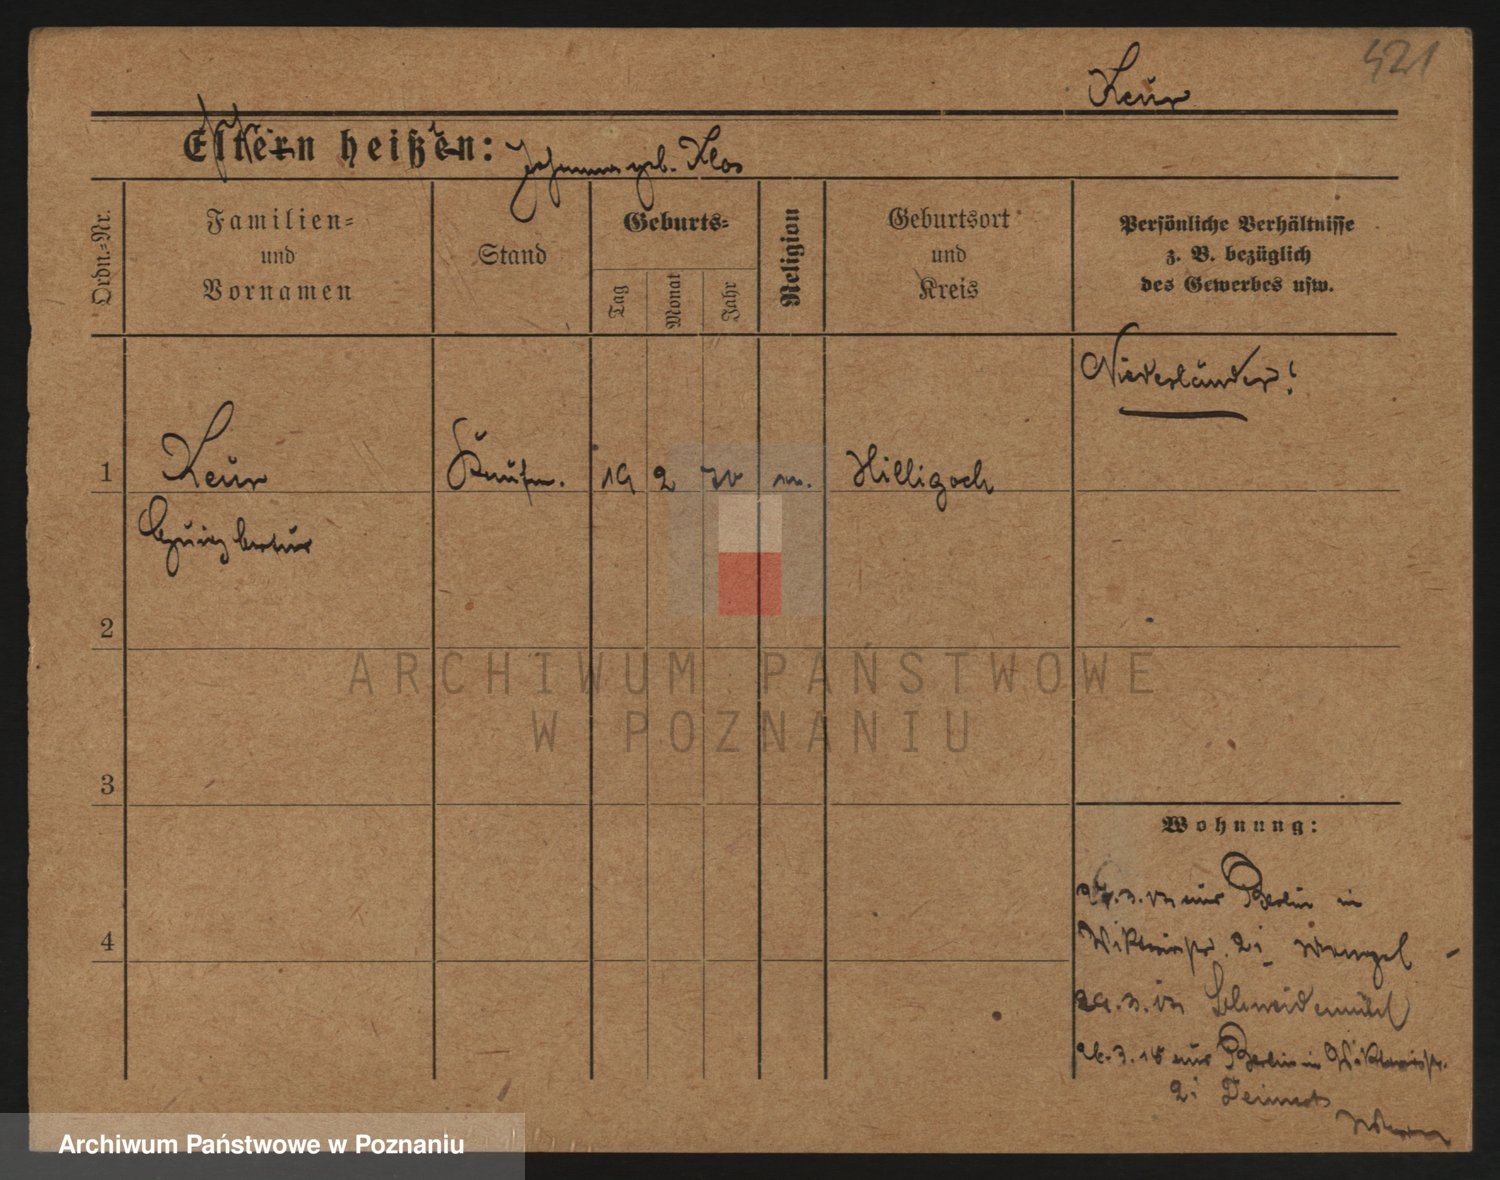 421
Keur
Eltern heißen: Johanna geb. Klos
Ordn.-Nr.
Familien-
und
Vornamen
Stand
Geburts-
Tag
Monat
Jahr
Religion
Geburtsort
und
Kreis
Persönliche Verhältnisse
z. B. bezüglich
des Gewerbes usw.
Niederländer!
1
Keur
Kaufm.
19
2
70
m.
Hilligoch
2
3
Wohnung:
4
27.3. aus Berlin in
Viktoriastr. 21
29.3. Schneidemühl
26.3.18 aus Berlin in Viktoriastr.
21
ARCHIWUM PAŃSTWOWE
W POZNANIU
Archiwum Państwowe w Poznaniu